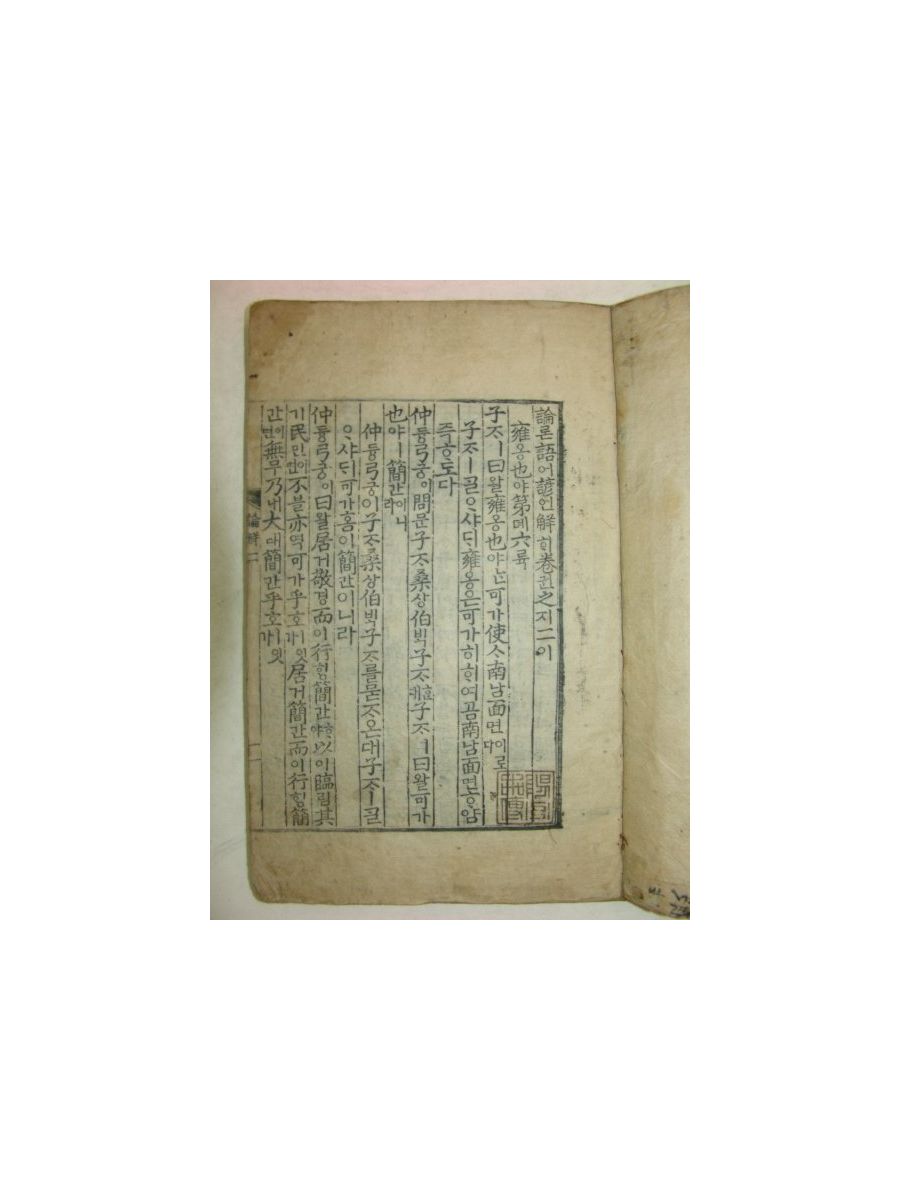 論론語어諺언解ᄒᆡ卷권之지二이
雍옹也야第뎨六륙
子ᄌᆞㅣ曰왈雍옹也야ᄂᆞᆫ可가使ᄉᆞ南남面면이로다
子ᄌᆞㅣᄀᆞᆯᄋᆞ샤ᄃᆡ雍옹은可가히ᄒᆞ여곰南남面면ᄒᆞ얌
즉ᄒᆞ도다
仲듕弓궁이問문子ᄌᆞ桑상伯ᄇᆡᆨ子ᄌᆞᄒᆞᆫ대子ᄌᆞㅣ曰왈可가
也야ㅣ簡간이니라
仲듕弓궁이子ᄌᆞ桑상伯ᄇᆡᆨ子ᄌᆞ를묻ᄌᆞ온대子ᄌᆞㅣᄀᆞᆯ
ᄋᆞ샤ᄃᆡ可가홈이簡간이니라
仲듕弓궁이曰왈居거敬경而이行ᄒᆡᆼ簡간ᄒᆞ야以이臨림其
기民민이면不블亦역可가乎호ㅣ잇가居거簡간而이行ᄒᆡᆼ簡
간이면無무乃내大대簡간乎호ㅣ잇가
論解二
一